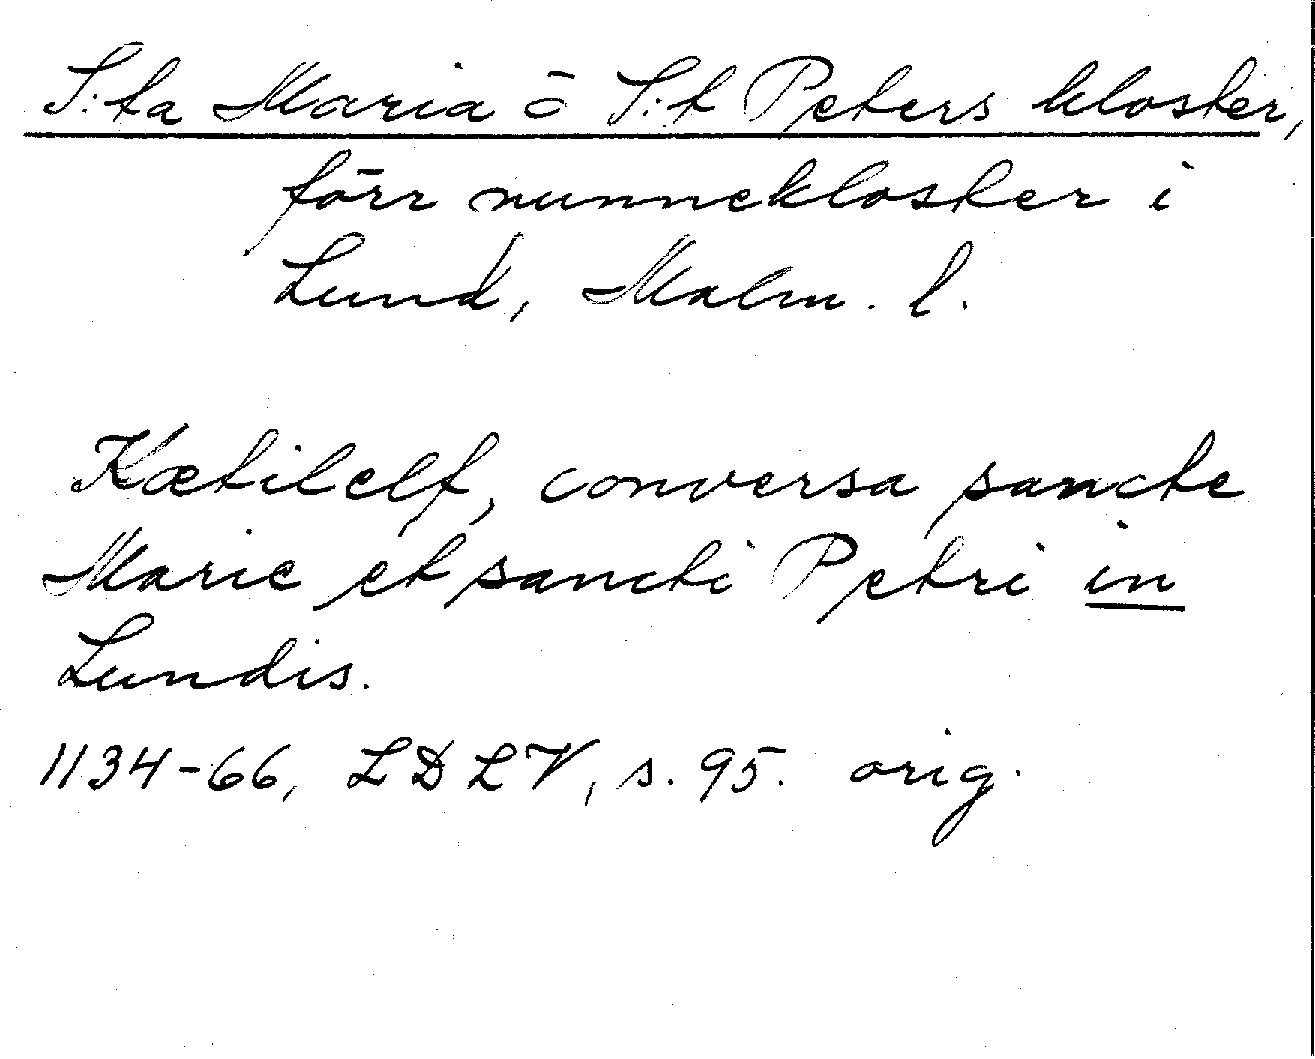 S:ta Maria o S:t Peters kloster,
förr nunnekloster i
Lund, Malm. l.
Kætilelf, conversa sancte
Marie et sancti Petri in
Lundis.
1134-66, LDLV, s. 95. orig.